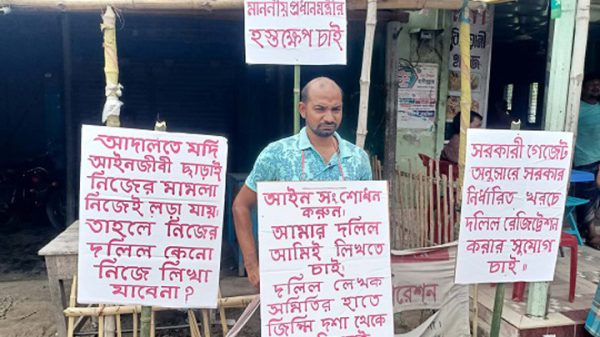 মাননীয় প্রধানমন্ত্রীর
হস্তক্ষেপ চাই
আদালতে যদি
আইনজীবী ছাড়াই
নিজের মামলা
নিজেই লড়া যায়।
তাহলে নিজের
দলিল কেনো
নিজে লিখা
যাবেনা ?
আইন সংশোধন
করুন।
আমার দলিল
আমিই লিখতে
চাই।
দলিল লেখক
সমিতির হাতে
জিম্মি দশা থেকে
সরকারী গেজেট
অনুসারে সরকার
নির্ধারিত খরচে
দলিল রেজিট্রেশন
করার সুযোগ
চাই।